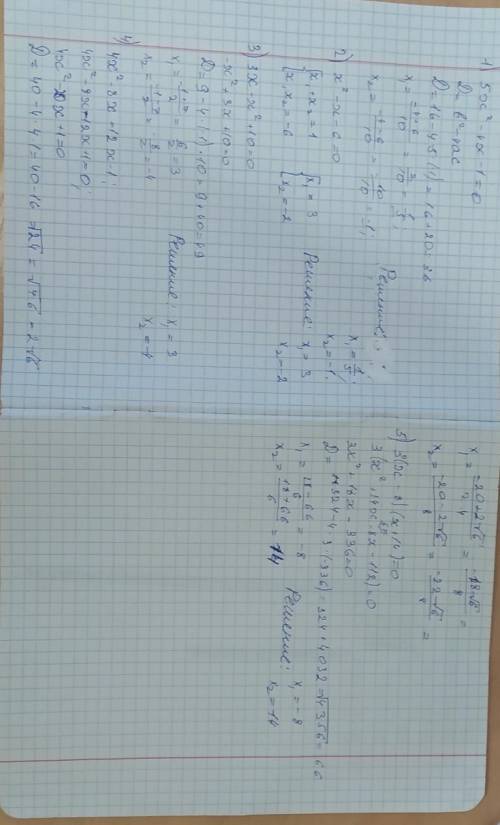 1) 5x² + 4x - 1 = 0
D = b² - 4ac
D = 16 - 4·5·(-1) = 16 + 20 = 36
x₁ = (-4+6)/10 = 2/10 = 1/5
x₂ = (-4-6)/10 = -10/10 = -1;
Решение: x₁ = 1/5;
x₂ = -1.
2) x² - x - 6 = 0
{x₁ + x₂ = 1 {x₁ = 3
{x₁ x₂ = -6 {x₂ = -2
Решение: x₁ = 3
x₂ = -2
3) 3x - x² + 10 = 0
-x² + 3x + 10 = 0
D = 9 - 4·(-1)·10 = 9 + 40 = 49
x₁ = (-1+7)/2 = 6/2 = 3
x₂ = (-1-7)/2 = -8/2 = -4
Решение: x₁ = 3
x₂ = -4
4) 4x² 8x = 12x - 1;
4x² - 8x - 12x + 1 = 0;
4x² - x + 1 = 0
D = 40 - 4·4·1 = 40 - 16 = √24 = √4·6 = 2√6
x₁ = (-20+2√6)/2·4 = (-18√6)/8 =
x₂ = (-20-2√6)/8 = (-22-√6)/8 =
5) 3(x - 8)(x + 14) = 0
3(x² + 14x - 8x - 112) = 0
3x² + 18x - 336 = 0
D = 324 - 4·3·(-336) = 324 + 4032 = √4356 = 66
x₁ = (18-66)/6 = -8
x₂ = (18+66)/6 = 14
Решение: x₁ = -8
x₂ = 14